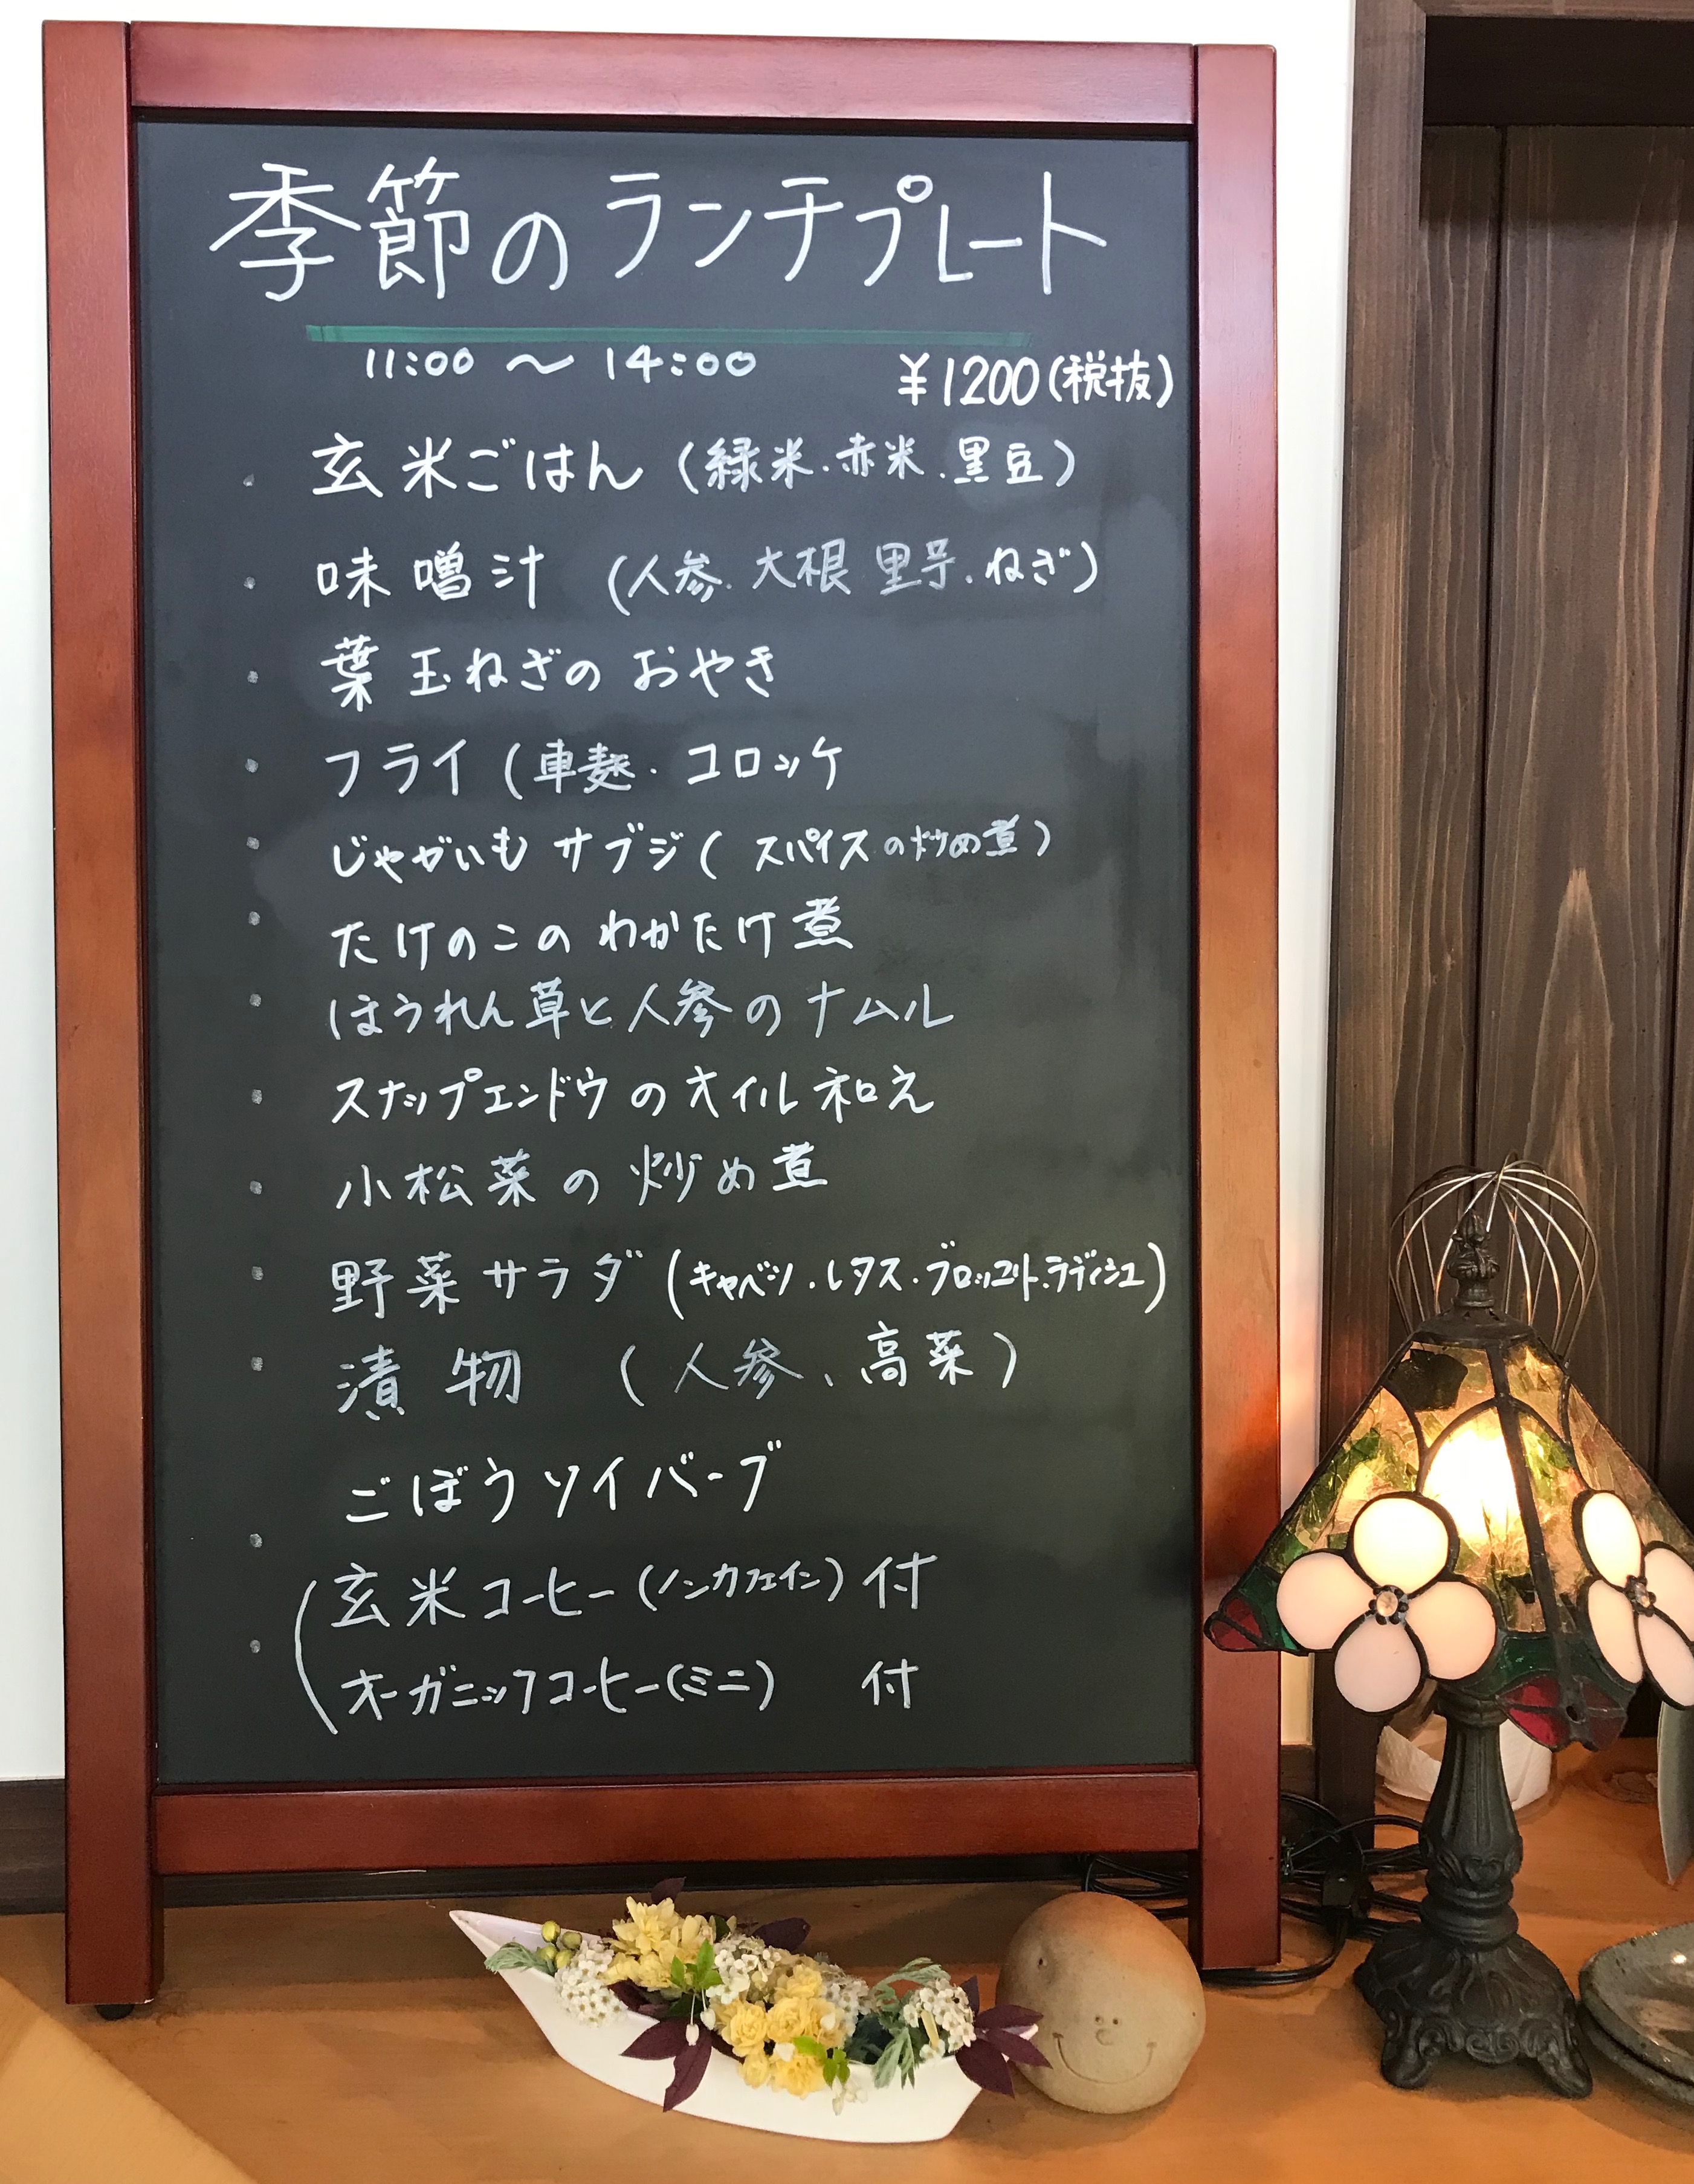 季節のランチプレート
11:00 〜 14:00 ¥1200(税抜)
・ 玄米ごはん (緑米・赤米・黒豆)
・ 味噌汁 (人参・大根 里芋・ねぎ)
・ 葉玉ねぎのおやき
・ フライ (車麩・コロッケ
・ じゃがいもサブジ (スパイスの炒め煮)
・ たけのこのわかたけ煮
・ ほうれん草と人参のナムル
・ スナップエンドウのオイル和え
・ 小松菜の炒め煮
・ 野菜サラダ (キャベツ・レタス・ブロッコリー・ラディシュ)
・ 漬物 (人参、高菜)
・ ごぼうソイバーブ
・ 玄米コーヒー(ノンカフェイン) 付
オーガニックコーヒー(ミニ) 付